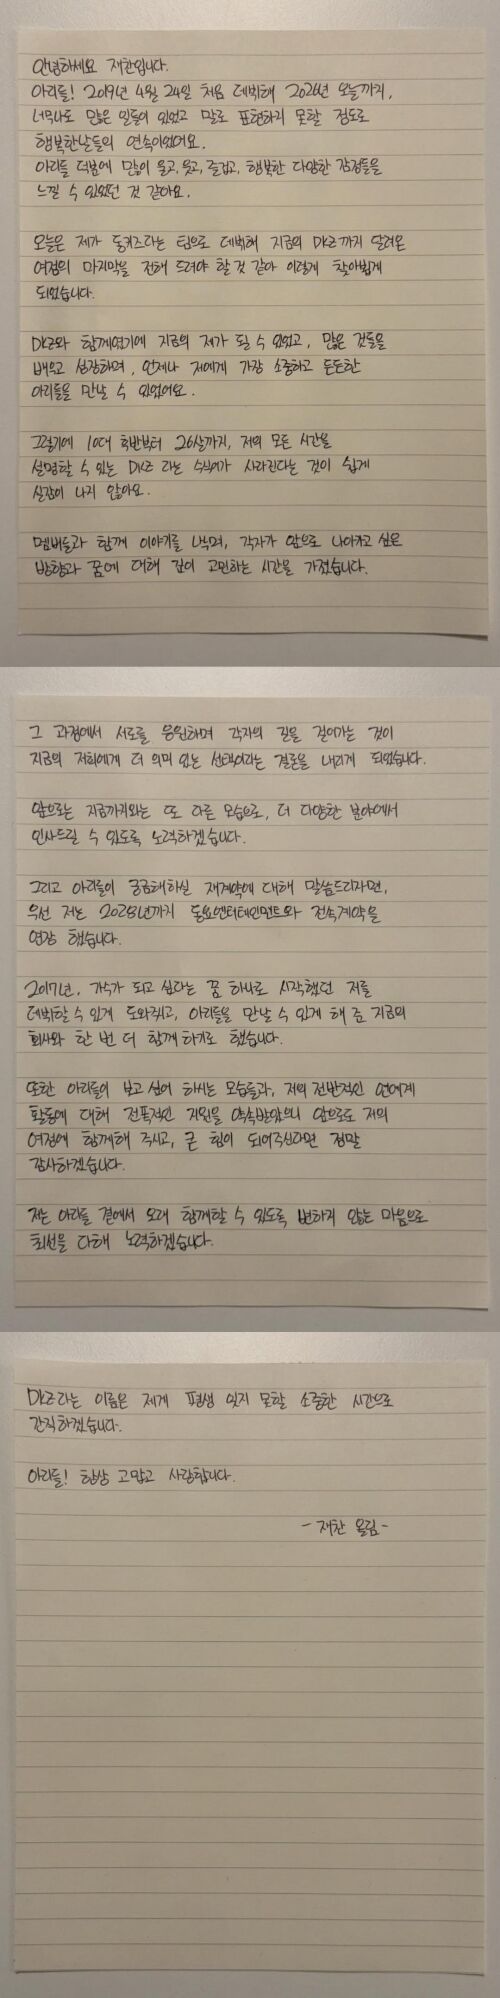 안녕하세요 재찬입니다.
아리들! 2019년 4월 24일 처음 데뷔해 2026년 오늘까지,
너무나도 많은 일들이 있었고 말로 표현하지 못할 정도로
행복한날들의 연속이었어요.
아리들 덕분에 많이 울고, 웃고, 즐겁고, 행복한 다양한 감정들을
느낄 수 있었던 것 같아요.
오늘은 제가 동키즈라는 팀으로 데뷔해 지금의 DKZ까지 달려온
여정의 마지막을 전해 드려야 할 것 같아 이렇게 찾아뵙게
되었습니다.
DKZ와 함께였기에 지금의 제가 될 수 있었고, 많은 것들을
배우고 성장하며, 언제나 저에게 가장 소중하고 든든한
아리들을 만날 수 있었어요.
그렇기에 10대 후반부터 26살까지, 저의 모든 시간을
설명할 수 있는 DKZ 라는 수식어가 사라진다는 것이 쉽게
실감이 나지 않아요.
멤버들과 함께 이야기를 나누며, 각자가 앞으로 나아가고 싶은
방향과 꿈에 대해 깊이 고민하는 시간을 가졌습니다.
그 과정에서 서로를 응원하며 각자의 길을 걸어가는 것이
지금의 저희에게 더 의미 있는 선택이라는 결론을 내리게 되었습니다.
앞으로는 지금까지와는 또 다른 모습으로, 더 다양한 분야에서
인사드릴 수 있도록 노력하겠습니다.
그리고 아리들이 궁금해하실 재계약에 대해 말씀드리자면,
우선 저는 2028년까지 동요엔터테인먼트와 전속계약을
연장 했습니다.
2017년, 가수가 되고 싶다는 꿈 하나로 시작했던 저를
데뷔할 수 있게 도와주고, 아리들을 만날 수 있게 해 준 지금의
회사와 한 번 더 함께 하기로 했습니다.
또한 아리들이 보고 싶어 하시는 모습들과, 저의 전반적인 연예계
활동에 대해 전폭적인 지원을 약속받았으니 앞으로도 저의
여정에 함께해 주시고, 큰 힘이 되어주신다면 정말
감사하겠습니다.
저는 아리들 곁에서 오래 함께할 수 있도록 변하지 않는 마음으로
최선을 다해 노력하겠습니다.
DKZ라는 이름은 제게 평생 잊지 못할 소중한 시간으로
간직하겠습니다.
아리들! 항상 고맙고 사랑합니다.
- 재찬 올림 -